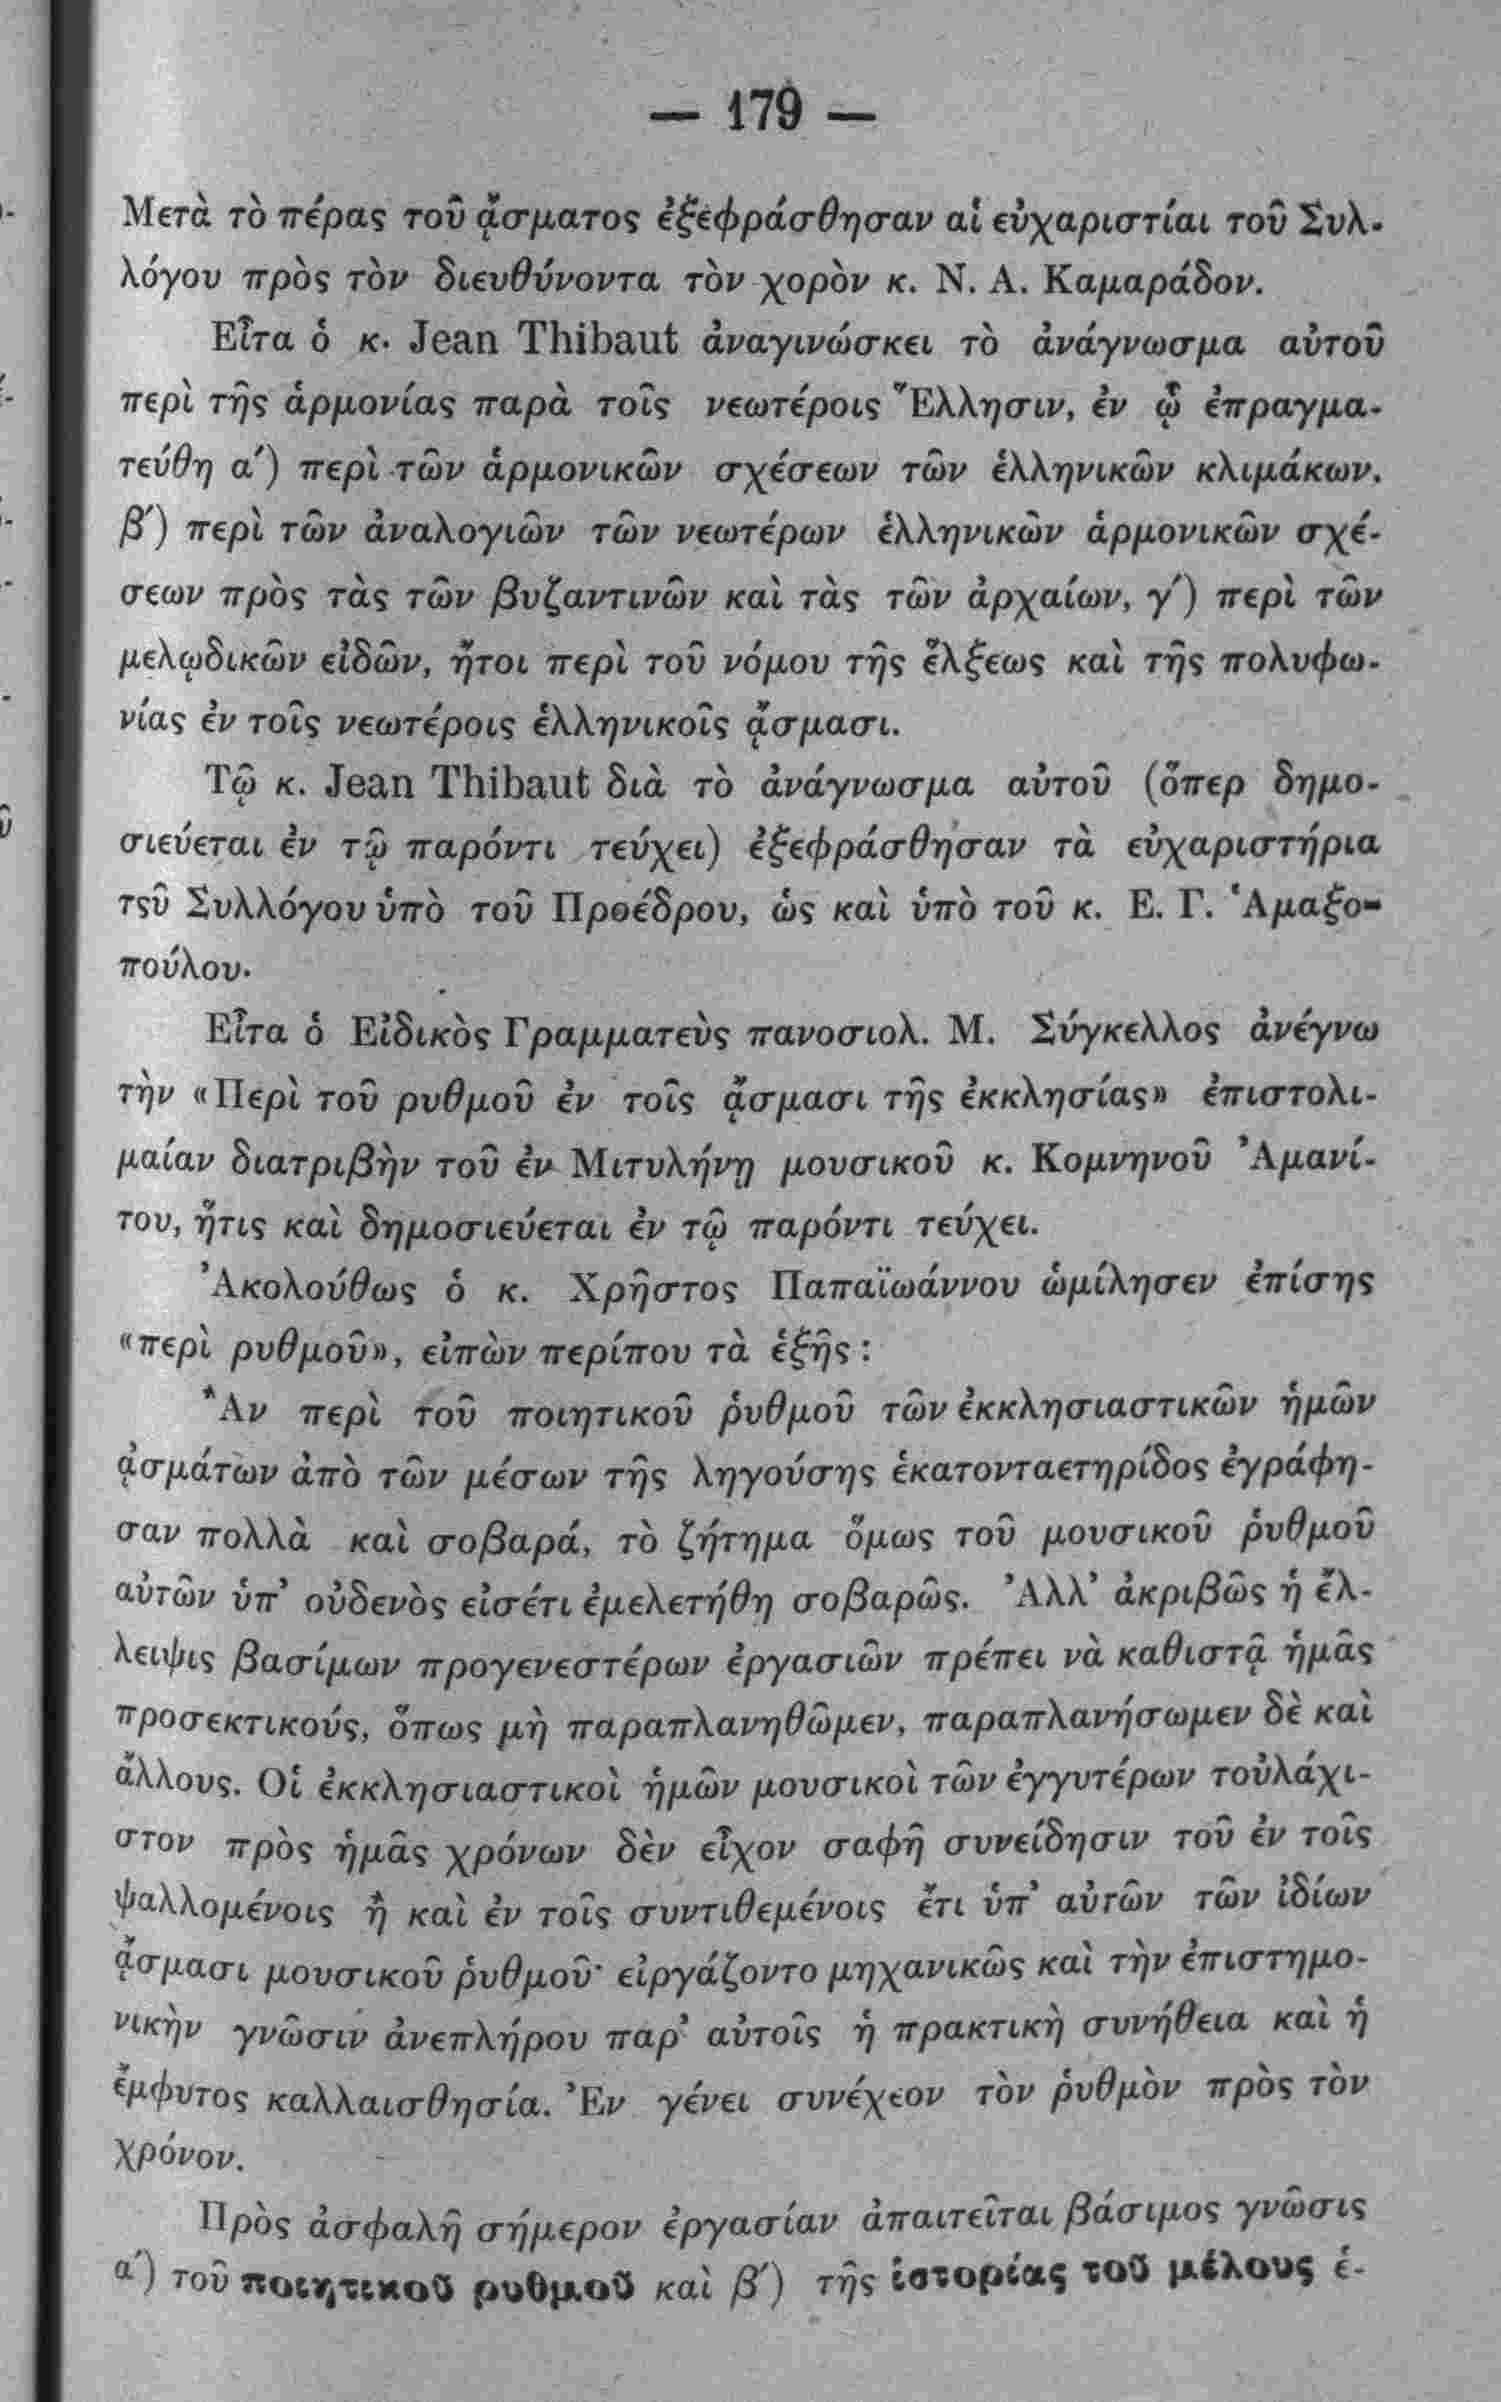 — 179 —
Μετὰ τὸ πέρας τοῦ ᾄσματος ἐξεφράσθησαν αἱ εὐχαριστίαι τοῦ Συλ-
λόγου πρὸς τὸν διευθύνοντα τὸν χορὸν κ. Ν. Α. Καμαράδον.
Εἶτα ὁ κ. Jean Thibaut ἀναγινώσκει τὸ ἀνάγνωσμα αὐτοῦ
περὶ τῆς ἁρμονίας παρὰ τοῖς νεωτέροις Ἕλλησιν, ἐν ᾧ ἐπραγμα-
τεύθη α΄) περὶ τῶν ἁρμονικῶν σχέσεων τῶν ἑλληνικῶν κλιμάκων,
β΄) περὶ τῶν ἀναλογιῶν τῶν νεωτέρων ἑλληνικῶν ἁρμονικῶν σχέ-
σεων πρὸς τὰς τῶν βυζαντινῶν καὶ τὰς τῶν ἀρχαίων, γ΄) περὶ τῶν
μελῳδικῶν εἰδῶν, ἤτοι περὶ τοῦ νόμου τῆς ἕλξεως καὶ τῆς πολυφω-
νίας ἐν τοῖς νεωτέροις ἑλληνικοῖς ᾄσμασι.
Τῷ κ. Jean Thibaut διὰ τὸ ἀνάγνωσμα αὐτοῦ (ὅπερ δημο-
σιεύεται ἐν τῷ παρόντι τεύχει) ἐξεφράσθησαν τὰ εὐχαριστήρια
τςῦ Συλλόγου ὑπὸ τοῦ Προέδρου, ὡς καὶ ὑπὸ τοῦ κ. Ε. Γ. Ἁμαξο-
πούλου.
Εἶτα ὁ Εἰδικὸς Γραμματεὺς πανοσιολ. Μ. Σύγκελλος ἀνέγνω
τὴν «Περὶ τοῦ ρυθμοῦ ἐν τοῖς ᾄσμασι τῆς ἐκκλησίας» ἐπιστολι-
μαίαν διατριβὴν τοῦ ἐν Μιτυλήνῃ μουσικοῦ κ. Κομνηνοῦ Ἀμανί-
του, ἥτις καὶ δημοσιεύεται ἐν τῷ παρόντι τεύχει.
Ἀκολούθως ὁ κ. Χρῆστος Παπαϊωάννου ὡμίλησεν ἐπίσης
«περὶ ρυθμοῦ», εἰπὼν περίπου τὰ ἑξῆς :
Ἂν περὶ τοῦ ποιητικοῦ ῥυθμοῦ τῶν ἐκκλησιαστικῶν ἡμῶν
ᾀσμάτων ἀπὸ τῶν μέσων τῆς ληγούσης ἑκατονταετηρίδος ἐγράφη-
σαν πολλὰ καὶ σοβαρά, τὸ ζήτημα ὅμως τοῦ μουσικοῦ ῥυθμοῦ
αὐτῶν ὑπ’ οὐδενὸς εἰσέτι ἐμελετήθη σοβαρῶς. Ἀλλ’ ἀκριβῶς ἡ ἔλ-
λειψις βασίμων προγενεστέρων ἐργασιῶν πρέπει νὰ καθιστᾷ ἡμᾶς
προσεκτικούς, ὅπως μὴ παραπλανηθῶμεν, παραπλανήσωμεν δὲ καὶ
ἄλλους. Οἱ ἐκκλησιαστικοὶ ἡμῶν μουσικοὶ τῶν ἐγγυτέρων τοὐλάχι-
στον πρὸς ἡμᾶς χρόνων δὲν εἶχον σαφῆ συνείδησιν τοῦ ἐν τοῖς
ψαλλομένοις ἢ καὶ ἐν τοῖς συντιθεμένοις ἔτι ὑπ’ αὐτῶν τῶν ἰδίων
ᾄσμασι μουσικοῦ ῥυθμοῦ· εἰργάζοντο μηχανικῶς καὶ τὴν ἐπιστημο-
νικὴν γνῶσιν ἀνεπλήρου παρ’ αὐτοῖς ἡ πρακτικὴ συνήθεια καὶ ἡ
ἔμφυτος καλλαισθησία. Ἐν γένει συνέχεον τὸν ῥυθμὸν πρὸς τὸν
χρόνον.
Πρὸς ἀσφαλῆ σήμερον ἐργασίαν ἀπαιτεῖται βάσιμος γνῶσις
α΄) τοῦ ποιητικοῦ ρυθμοῦ καὶ β΄) τῆς ἱστορίας τοῦ μέλους ἑ-